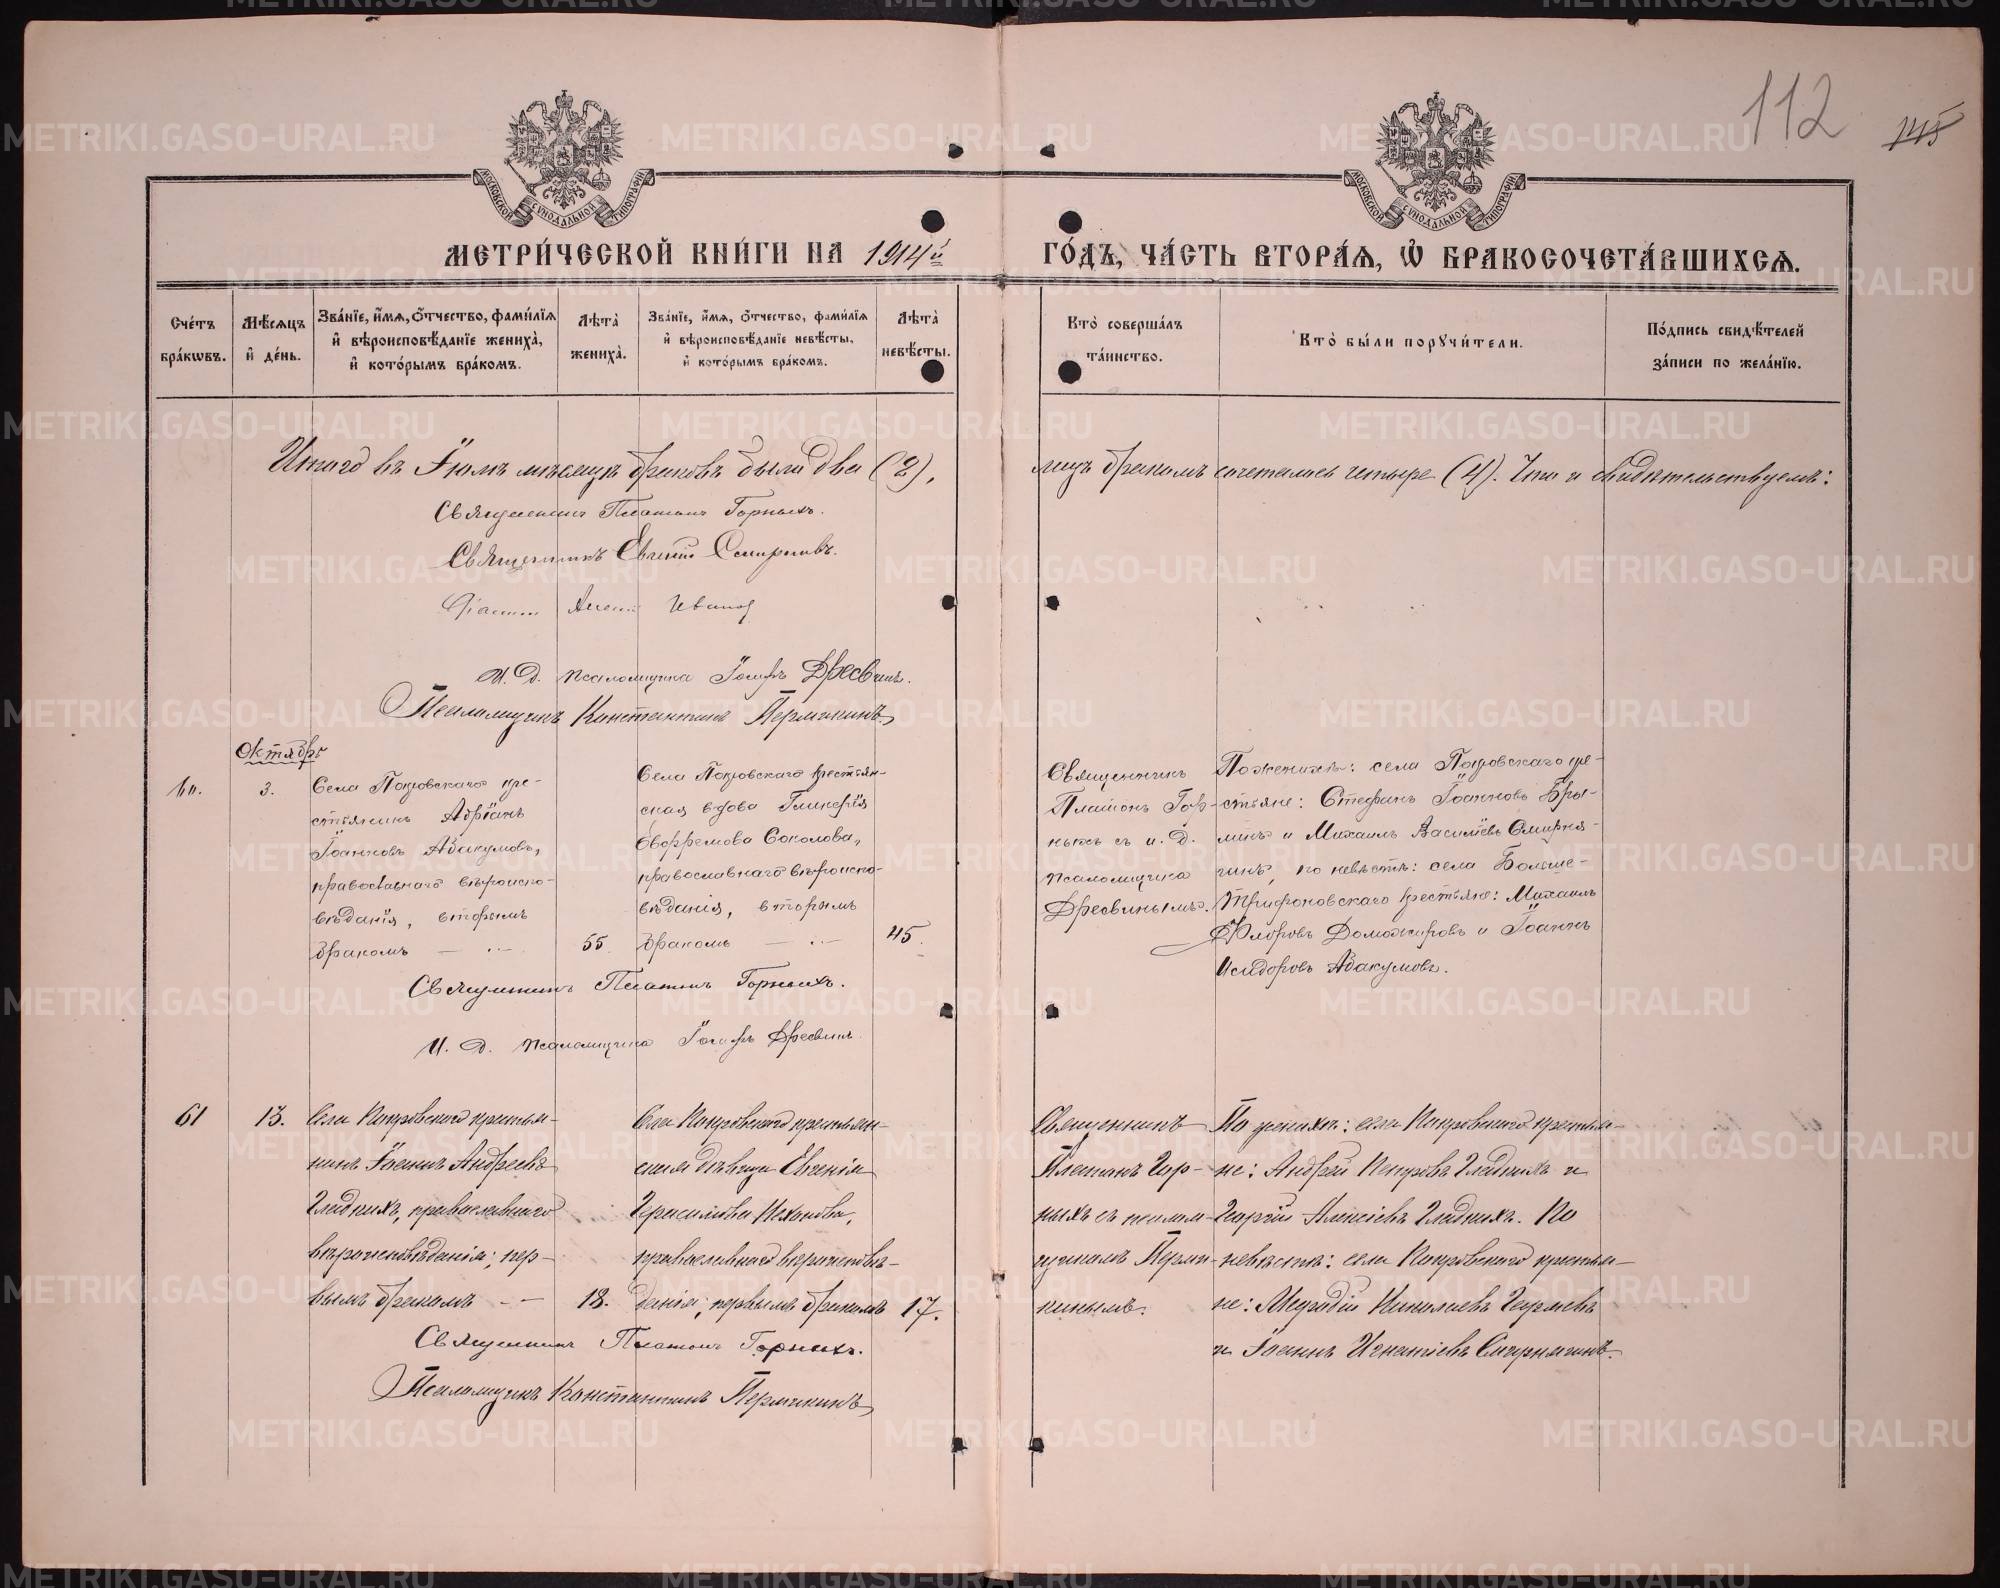 112
145
МОСКОВСКОЙ СѴНОДАЛЬНОЙ ТИПОГРАФІИ
МОСКОВСКОЙ СѴНОДАЛЬНОЙ ТИПОГРАФІИ
МЕТРИ́ЧЕСКОЙ КНИ́ГИ НА 1914й ГО́ДЪ, ЧА́СТЬ ВТОРА́Я, Ѡ БРАКОСОЧЕТА́ВШИХСЯ.
Сче́тъ бра́кѡвъ.
Мѣ́сяцъ и де́нь.
Зва́нїе, и́мя, ѻ́тчество, фами́лїя и вѣроисповѣ́данїе жениха̀, и кото́рымъ бра́комъ.
Лѣ́та жениха̀.
Зва́нїе, и́мя, ѻ́тчество, фами́лїя и вѣроисповѣ́данїе невѣ́сты, и кото́рымъ бра́комъ.
Лѣ́та невѣ́сты.
Кто̀ соверша́лъ та́инство.
Кто̀ бы́ли порꙋчи́тели.
По́дпись свидѣ́телей за́писи по жела́нїю.
Итого въ Іюлѣ мѣсяцѣ браковъ было два (2), лицъ бракомъ сочеталось четыре (4). Что и свидѣтельствуемъ:
Священникъ Платонъ Горныхъ.
Священникъ Евгеній Смирновъ.
Діаконъ Иванов
И. Д. псаломщика Іосифъ Дресвинъ.
Псаломщикъ Константинъ Пермикинъ
Октябрь
60.
3.
Села Покровскаго кре-
стьянинъ Адріанъ
Іоанновъ Абакумовъ,
православнаго вѣроиспо-
вѣданія, вторымъ
бракомъ — ·· —
55
Села Покровскаго крестьян-
ская вдова Гликерія
Евфремова Соколова,
православнаго вѣроиспо-
вѣданія, вторымъ
бракомъ — ·· —
45.
Священникъ
Платонъ Гор-
ныхъ съ и. д.
псаломщика
Дресвинымъ.
По женихѣ: села Покровскаго кре-
стьяне: Стефанъ Іоанновъ Бры-
линъ и Михаилъ Васильевъ Смирня-
гинъ, по невѣстѣ: села Больше-
Трифоновскаго крестьяне: Михаилъ
Флоровъ Доможировъ и Іоаннъ
Исидоровъ Абакумовъ.
Священникъ Платонъ Горныхъ.
И. Д. псаломщика Іосифъ Дресвинъ.
61
13.
Села Покровскаго крестья-
нинъ Іоаннъ Андреевъ
Гладкихъ, православнаго
вѣроисповѣданія; пер-
вымъ бракомъ — —
18.
Села Покровскаго крестьян-
ская дѣвица Евгенія
Герасимова
православнаго вѣроисповѣ-
данія; первымъ бракомъ
17.
Священникъ
Платонъ Гор-
ныхъ съ псалом-
щикомъ Перми-
кинымъ.
По женихѣ: села Покровскаго крестья-
не: Андрей Петровъ Гладкихъ и
Георгій Алексіевъ Гладкихъ. По
невѣстѣ: села Покровскаго крестья-
не: Меѳодій Николаевъ
и Іоаннъ Игнатіевъ Смирнягинъ.
Священникъ Платонъ Горныхъ.
Псаломщикъ Константинъ Пермикинъ
METRIKI.GASO-URAL.RU